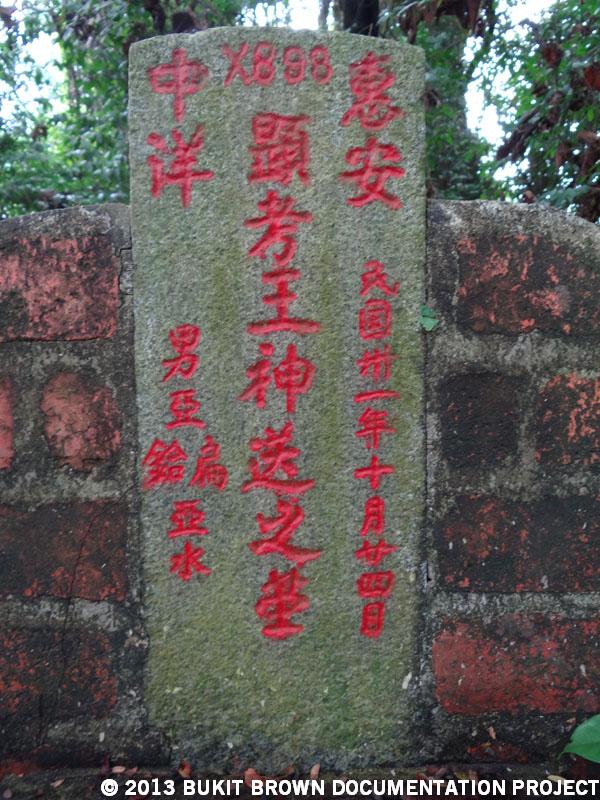 X898
惠安
民国卅一年十月廿四日
顕考王神送之塋
申洋
男亞扁鉿亞水
© 2013 BUKIT BROWN DOCUMENTATION PROJECT